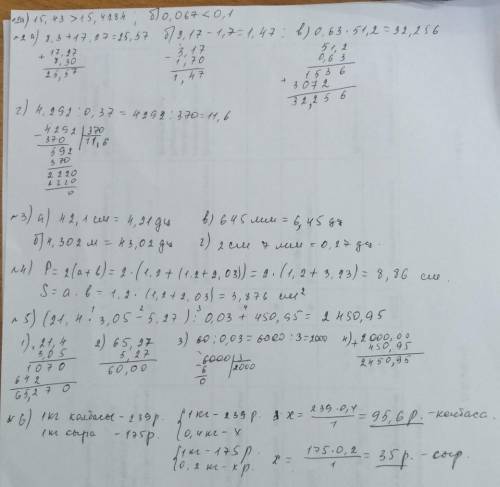 №1а) 15,43 > 15,4284, б) 0,067 < 0,1
№2 а) 2,3 + 17,27 = 25,57 б) 3,17 - 1,7 = 1,47 ; в) 0,63 · 51,2 = 32,256
+ 17,27
8,30
25,57
- 3,17
1,70
1,47
51,2
0,63
1536
+ 3072
32,256
г) 4,292 : 0,37 = 4292 : 370 = 11,6
- 4292 | 370
370 | 11,6
592
370
2220
2220
0
№3) а) 42,1 см = 4,21 дм в) 645 мм = 6,45 дм
б) 4,302 м = 43,02 дм г) 2 см 7 мм = 0,27 дм.
№4) P = 2(a+b) = 2 · (1,2 + (1,2 + 2,03)) = 2 · (1,2 + 3,23) = 8,86 см
S = a · b = 1,2 · (1,2 + 2,03) = 3,876 см²
№5) (21,4 · 3,05 - 5,27) : 0,03 + 450,95 = 2450,95
1) 21,4
3,05
1070
642
65,270
2) 65,27
5,27
60,00
3) 60 : 0,03 = 6000 : 3 = 2000
- 6000 | 3
6 | 2000
0
4) + 2000,00
450,95
2450,95
№6) 1кг колбасы - 239р.
1кг сыра - 175р.
{ 1кг - 239р.
0,4кг - x
x = 239·0,4 / 1 = 95,6 р. - колбаса.
{ 1кг - 175р.
0,2 кг - xр.
x = 175·0,2 / 1 = 35 р. - сыр.